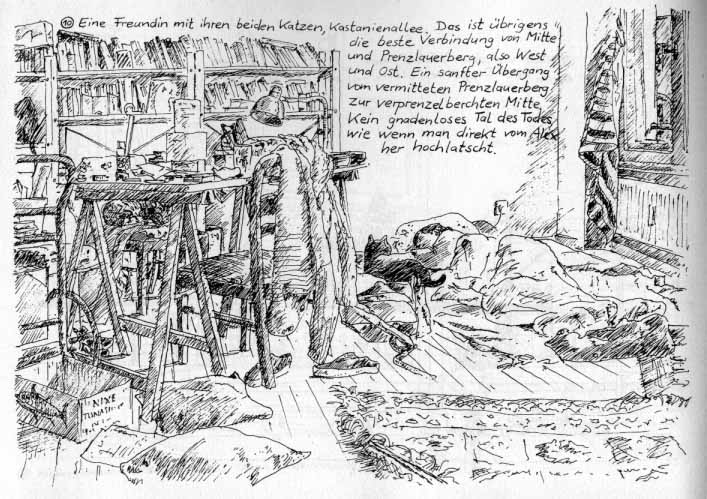 ⑩ Eine Freundin mit ihren beiden Katzen, Kastanienallee. Das ist übrigens
die beste Verbindung von Mitte
und Prenzlauerberg, also West
und Ost. Ein sanfter Übergang
vom vermitteten Prenzlauerberg
zur verprenzelberchten Mitte.
Kein gnadenloses Tal des Todes,
wie wenn man direkt vom Alex
her hochlatscht.
NIXE